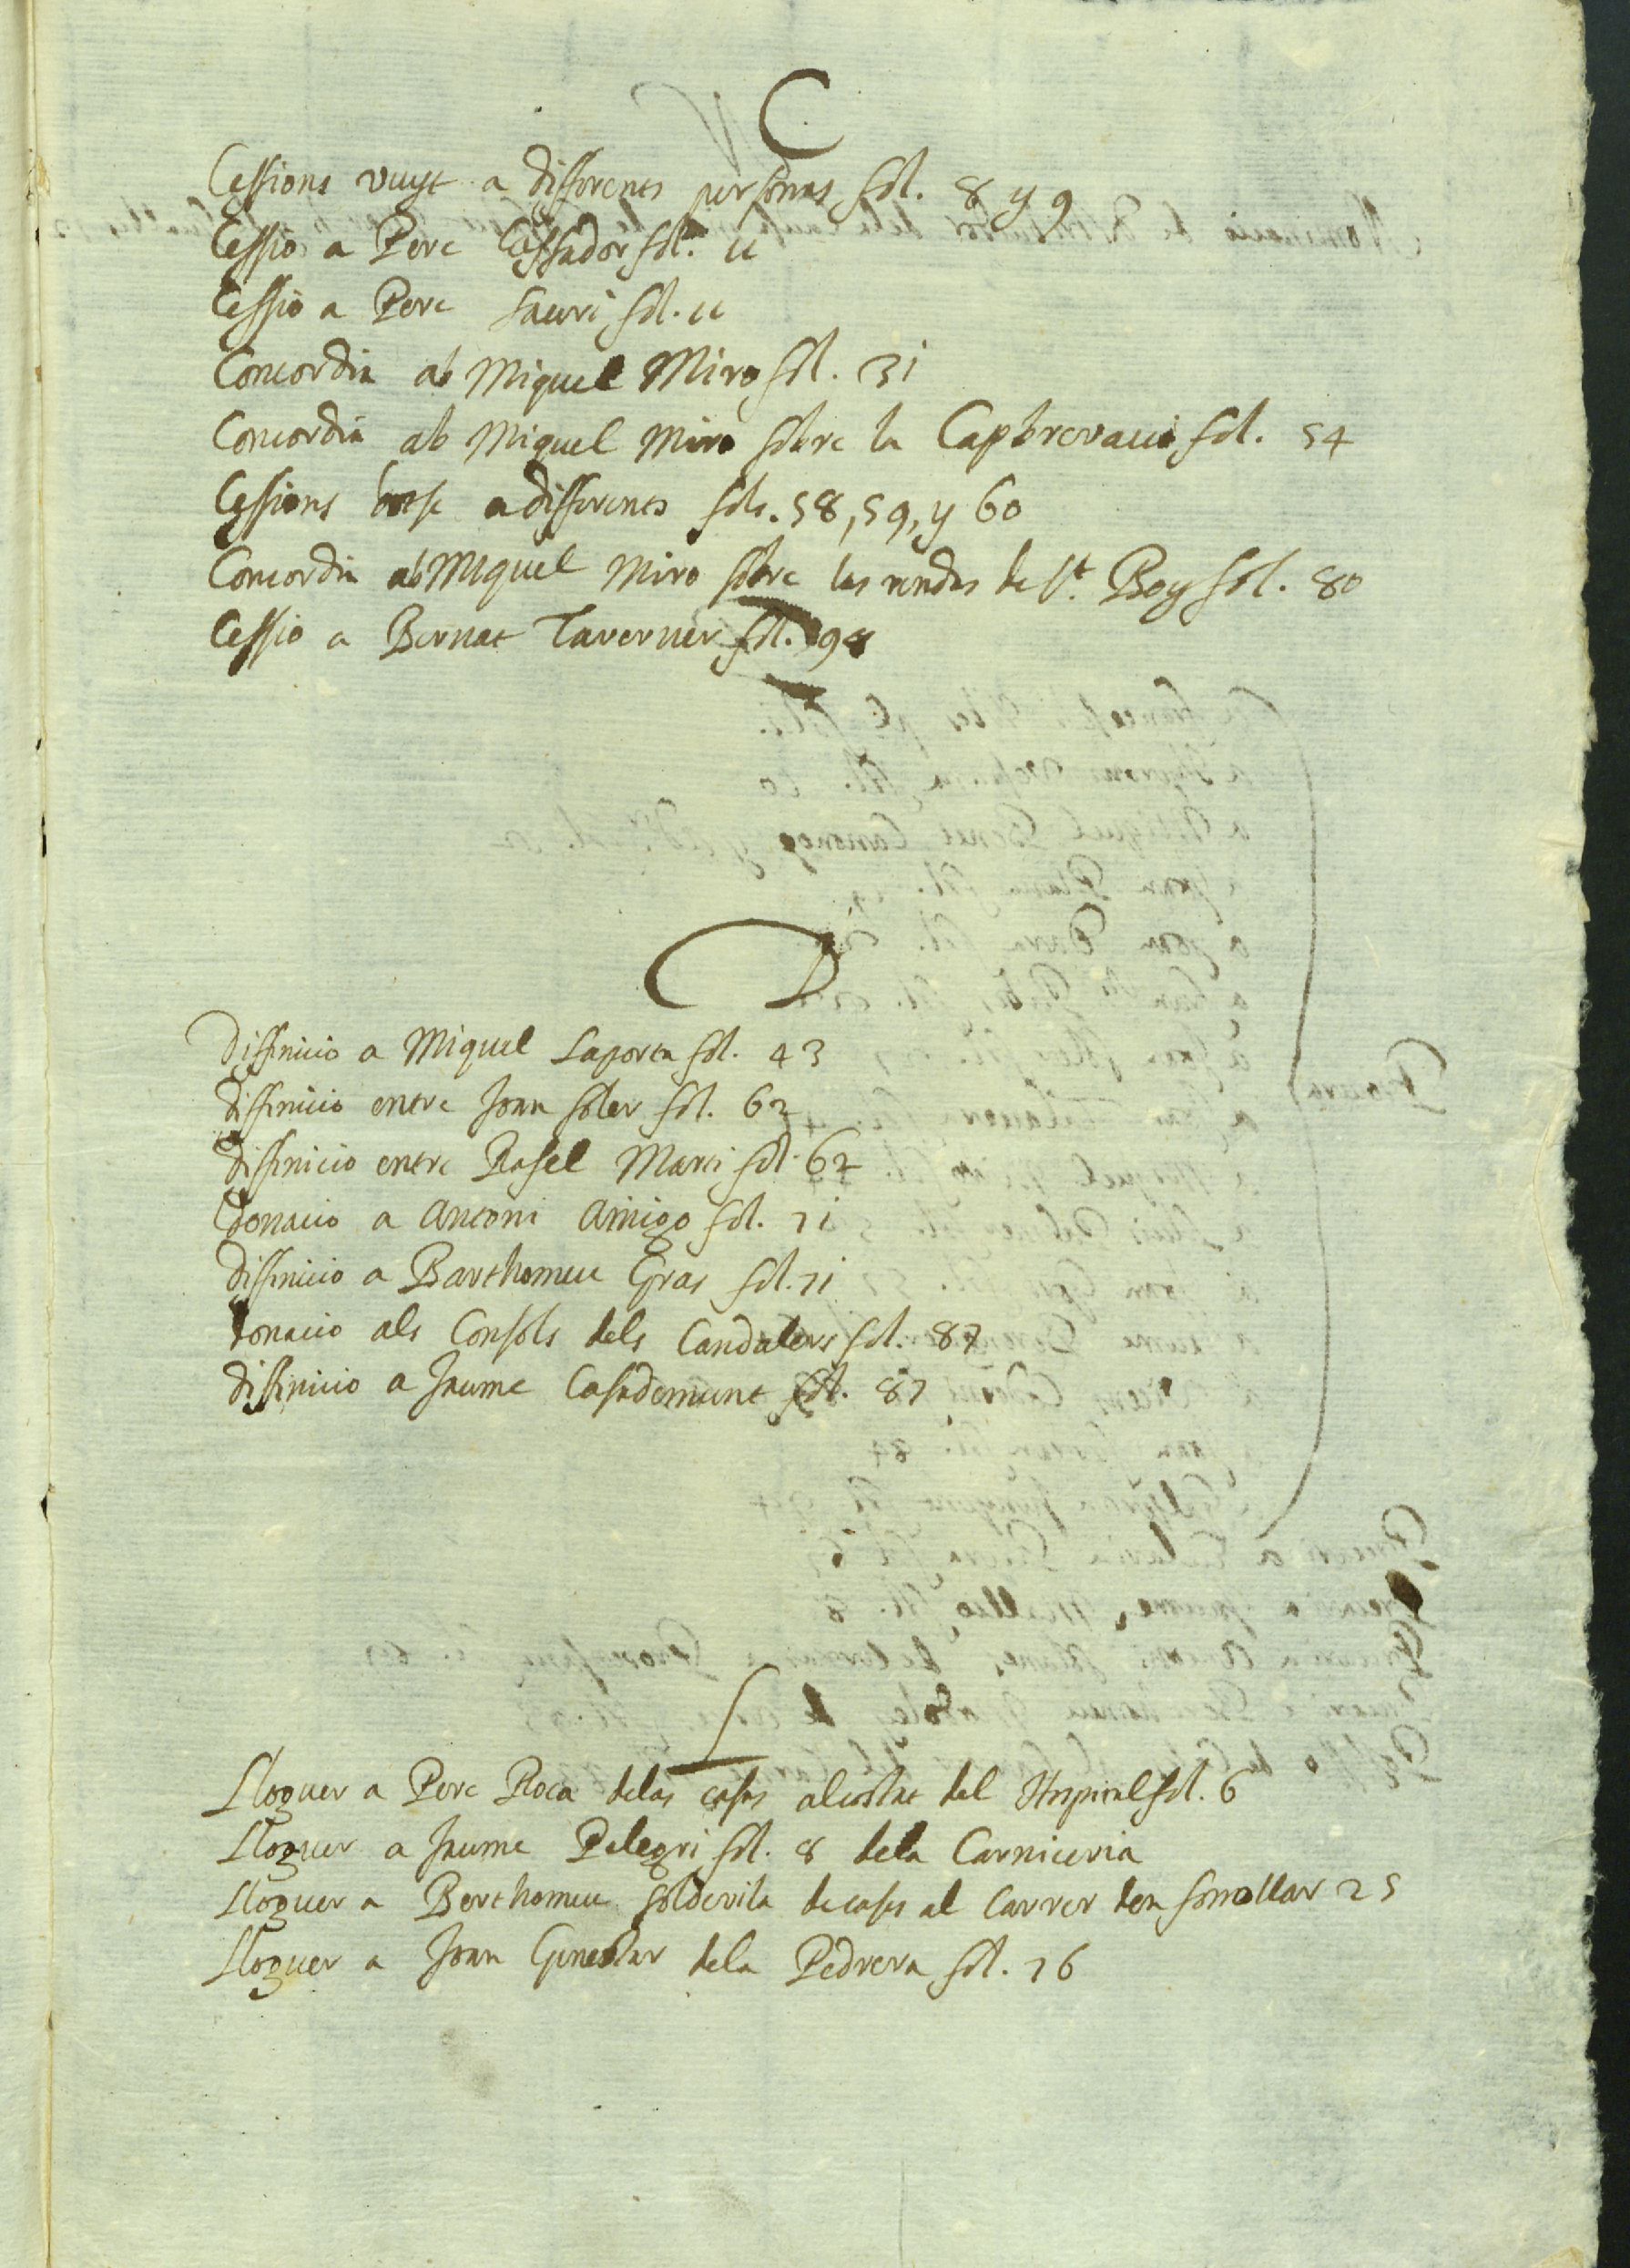 C
Cessions vuyt a differents personas fol. 8 y 9
Cessio a Pere Cassador fol. 11
Cessio a Pere Sauri fol. 11
Concordia ab Miquel Miro fol. 31
Concordia ab Miquel Miro sobre la Capbrevacio fol. 54
Cessions a differents fols. 58, 59, y 60
Concordia ab Miquel Miro sobre las rendas de St. Boy fol. 80
Cessio a Bernat Taverner fol. 98
D
Diffinicio a Miquel Laporta fol. 43
diffinicio entre Joan Soler fol. 62
diffinicio entre Rafel Marti fol. 62
donacio a Antoni Amigo fol. 71
diffinicio a Barthomeu Gras fol. 71
donacio als Consols dels Candalers fol. 87
diffinicio a Jaume Casademunt fol. 87
L
Lloguer a Pere Roca delas casas al costat del Hospital fol. 6
Lloguer a Jaume Pelegri fol. 8 dela Carniceria
Lloguer a Berthomeu Soldevila de casas al Carrer den 25
Lloguer a Joan Ginestar dela Pedrera fol. 76